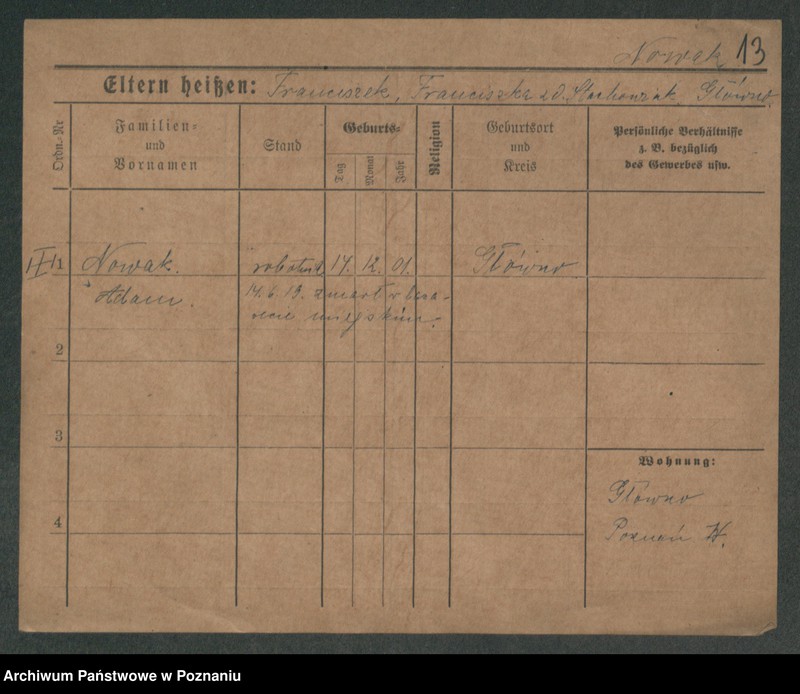 Nowak 13
Eltern heißen: Franciszek, Franciszka z d. Stachowiak Główno.
Ordn.-Nr
Familien- und Vornamen
Stand
Geburts-
Tag
Monat
Jahr
Religion
Geburtsort und Kreis
Persönliche Verhältnisse
z. B. bezüglich
des Gewerbes usw.
1 Nowak. 12. 01. Główno
Adam. zmarł w
miejskim.
2
3
Wohnung:
Główno
4
Poznań W.
Archiwum Państwowe w Poznaniu